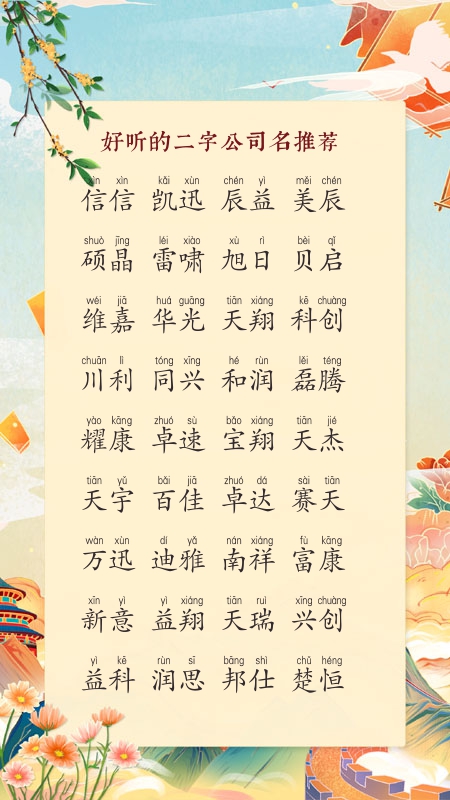 好听的二字公司名推荐
xìn xìn kǎi xùn chén yì měi chén
信信 凯迅 辰益 美辰
shuò jīng léi xiào xù rì bèi qǐ
硕晶 雷啸 旭日 贝启
wéi jiā huá guāng tiān xiáng kē chuàng
维嘉 华光 天翔 科创
chuān lì tóng xīng hé rùn lěi téng
川利 同兴 和润 磊腾
yào kāng zhuó sù bǎo xiáng tiān jié
耀康 卓速 宝翔 天杰
tiān yǔ bǎi jiā zhuó dá sài tiān
天宇 百佳 卓达 赛天
wàn xùn dí yǎ nán xiáng fù kāng
万迅 迪雅 南祥 富康
xīn yì yì xiáng tiān ruì xīng chuàng
新意 益翔 天瑞 兴创
yì kē rùn sī bāng shì chǔ héng
益科 润思 邦仕 楚恒